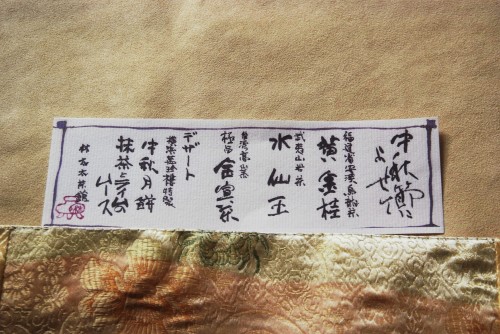 中秋節に
よせて
福建省安渓烏龍茶
黄金桂
武夷山岩茶
水仙王
台湾高山茶
極品 金宣茶
デザート
横浜萬珍樓特製
中秋月餅
抹茶とライムの
ムース